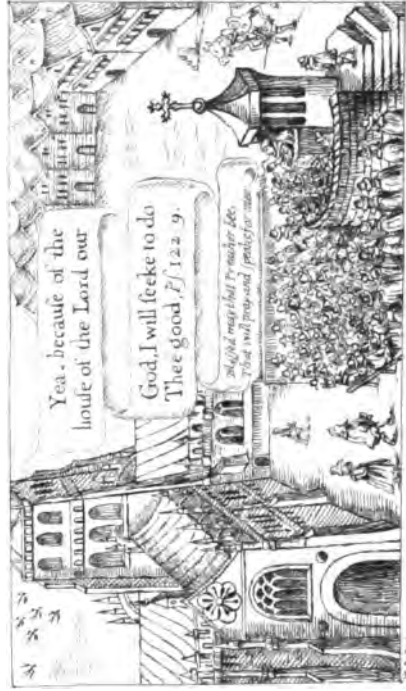 Yea, becauſe of the
houſe of the Lord our
God, I will ſeeke to do
Thee good, Pſ 122 9.
Bleſſed may that Preacher bee,
That will pray and ſpeake for mee